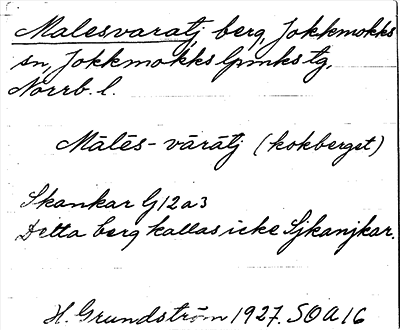 Malesvaratj berg, Jokkmokks
sn, Jokkmokks lpmkstg,
Norrb. l.
Mālēs-vārātj (kokberget)
Skankar G12a3
Detta berg kallas icke Sjkanjkar.
H. Grundström 1927. SOA16